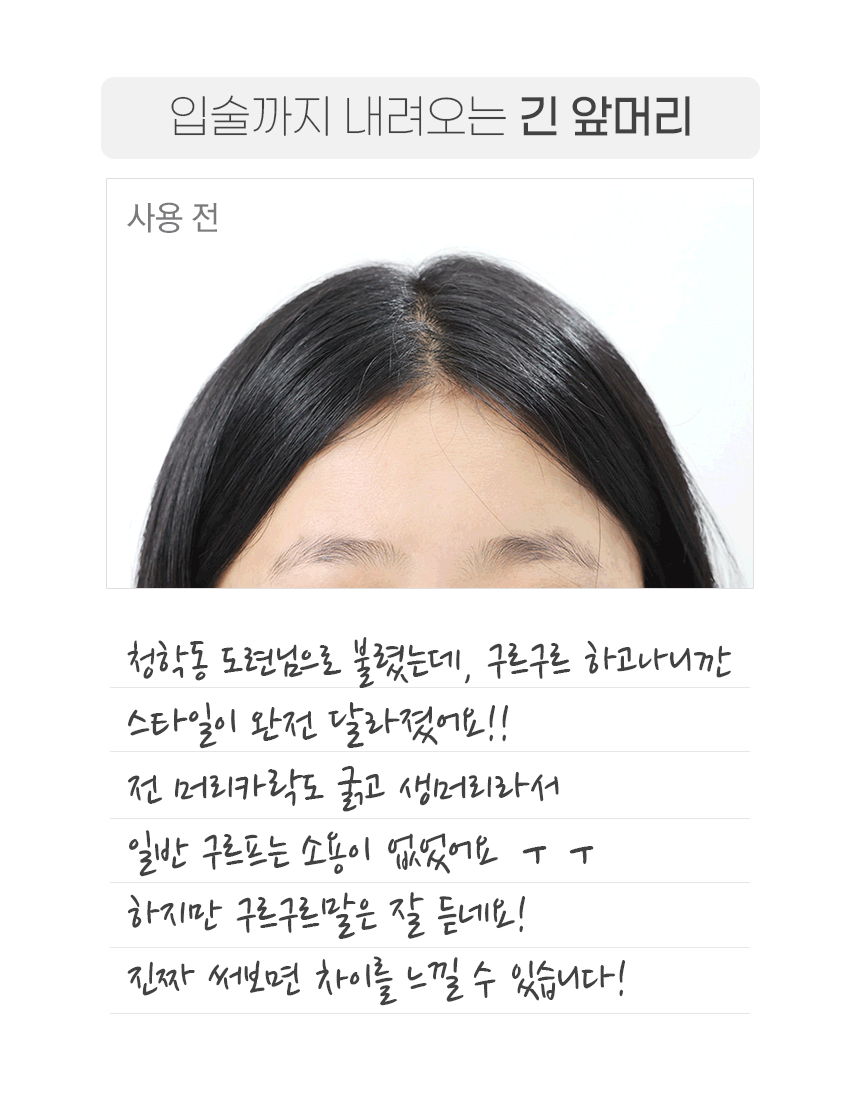 입술까지 내려오는 긴 앞머리
사용 전
청학동 도련님으로 불렸는데, 구르구르 하고나니깐
스타일이 완전 달라졌어요!!
전 머리카락도 굵고 생머리라서
일반 구르프는 소용이 없었어요 ㅜ ㅜ
하지만 구르구르말은 잘 듣네요!
진짜 써보면 차이를 느낄 수 있습니다!